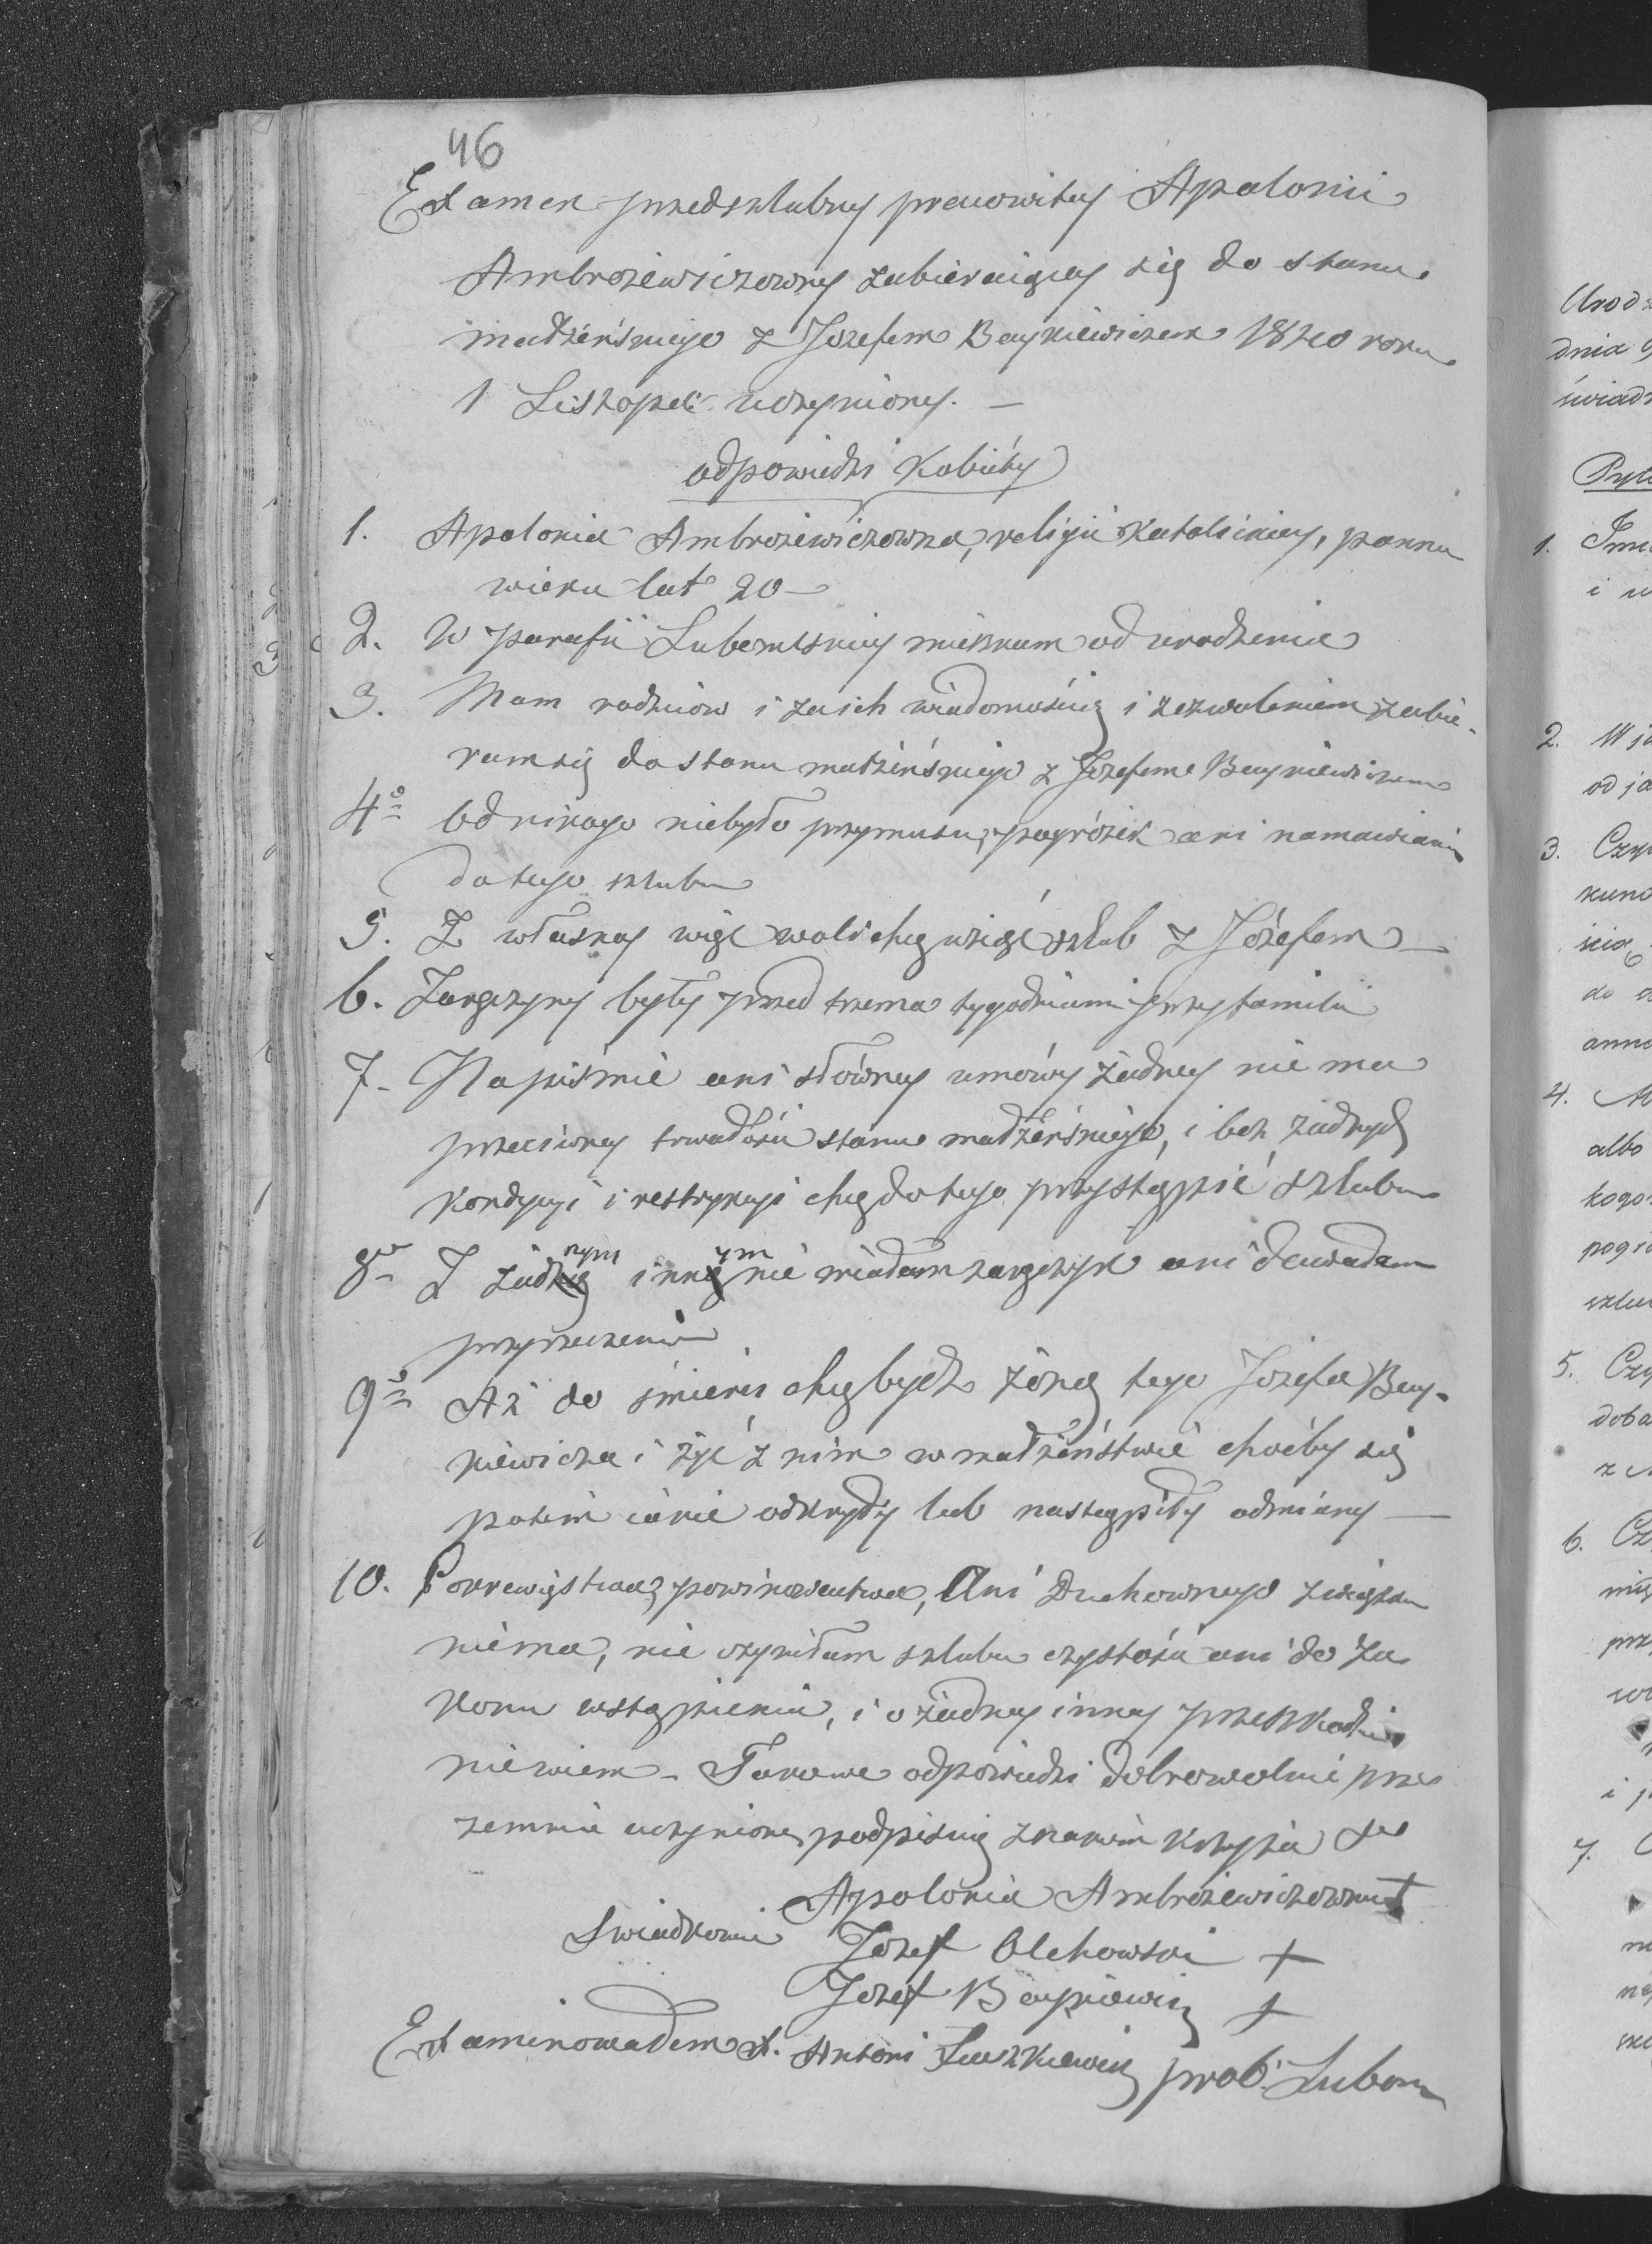 46
Examen przedszlubny pracowitey Apolonii
Ambrożewiczowny zabieraiącey się do stanu
małżeńskiego z Jozefem Baykiewiczem 1840 roku
1 Listopad: uczyniony. —
odpowiedzi Kobiéty
1. Apolonia Ambrożewiczowna, religii Katolickiey, panna
wieku lat 20 —
2. W parafii Lubomlskiey mieszkam od urodzenia
3. Mam rodziców i za ich wiadomością i zezwoleniem zabie-
ram się do stanu małżeńskiego z Jozefem Baykiewiczem
4o Od nikogo niebyło przymusu, pogróżek ani namawiania
do tego szlubu
5. Z własney więc woli chcę wziąć szlub z Józefem —
6. Zaręczyny były przed trzema tygodniami przy familii
7 - Na piśmie ani słówney umówy żadney nie ma
przeciwney trwałości stanu małżeńskiego, i bez żadnych
kondycyi i restrykcyi chcę do tego przystąpić szlubu
8o Z żadnym innym nie miałam zaręczyn ani dawałam
przyrzeczenia
9o Aż do śmierci chcę bydz żoną tego Jozefa Bay-
kiewicza i żyć z nim w małżeństwie choćby się
potem iakie odkryły lub nastąpiły odmiany —
10. Pokrewieństwa, powinowactwa, Ani Duchownego związku
niema, nie czyniłam szlubu czystości ani do Za
konu wstąpienia, i o żadney inney przeszkodzie
niewiem - Takowe odpowiedzi dobrowolnie prze
zemnie uczynione podpisuię znakiem krzyża
Apolonia Ambrożewiczowna +
Swiadkowie Jozef Olchowski +
Jozef Baykiewicz +
Examinowałem X. Antoni prob: Lubom
Urodz
dnia
świad
1. Imie
i
2. W ja
od ja
3. Czy
kuno
do
4. Al
albo
kogo
pogr
szlu
5. Czy
doba
z
6. Cz
prz
7.